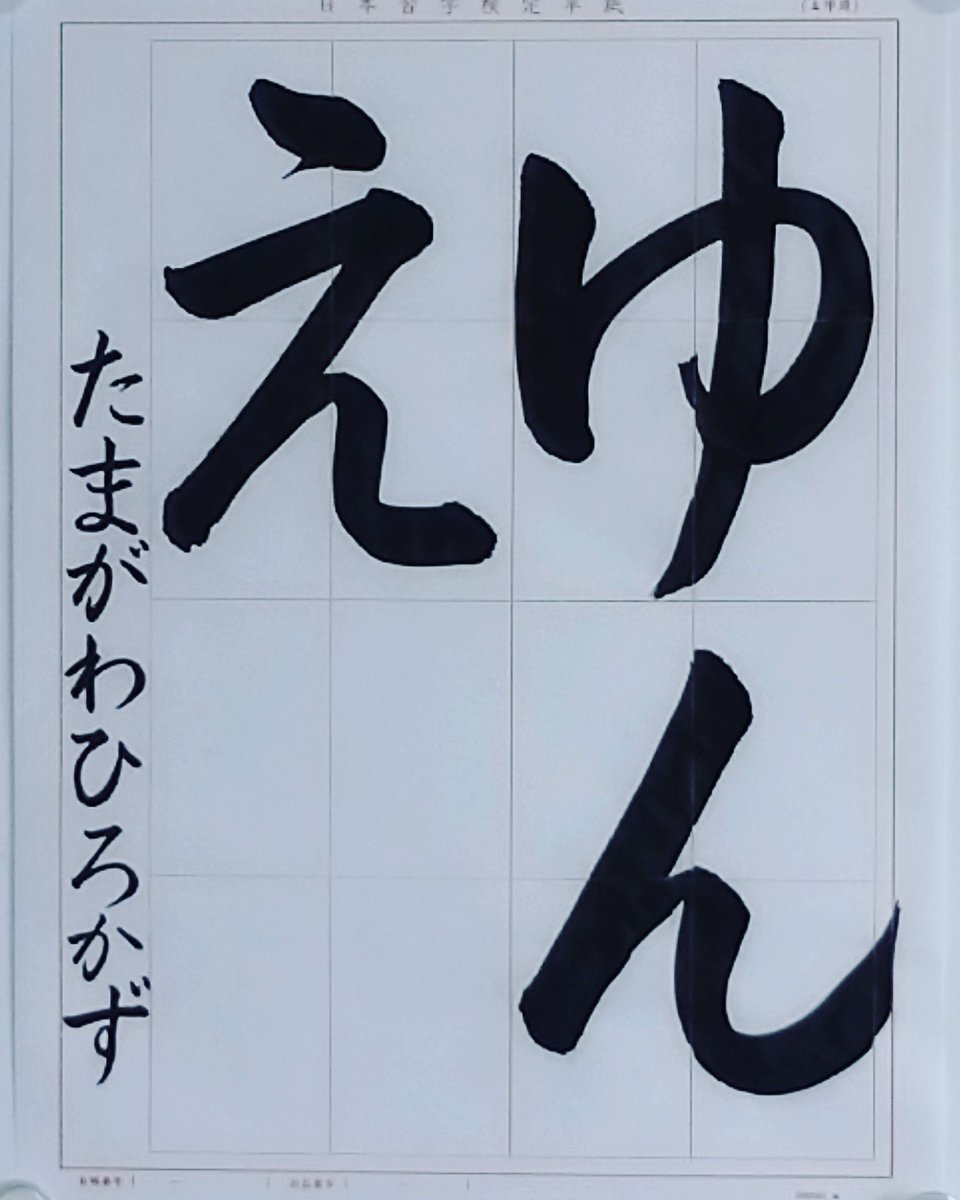 日本習字検定半紙
ゆん
え
たまがわひろかず